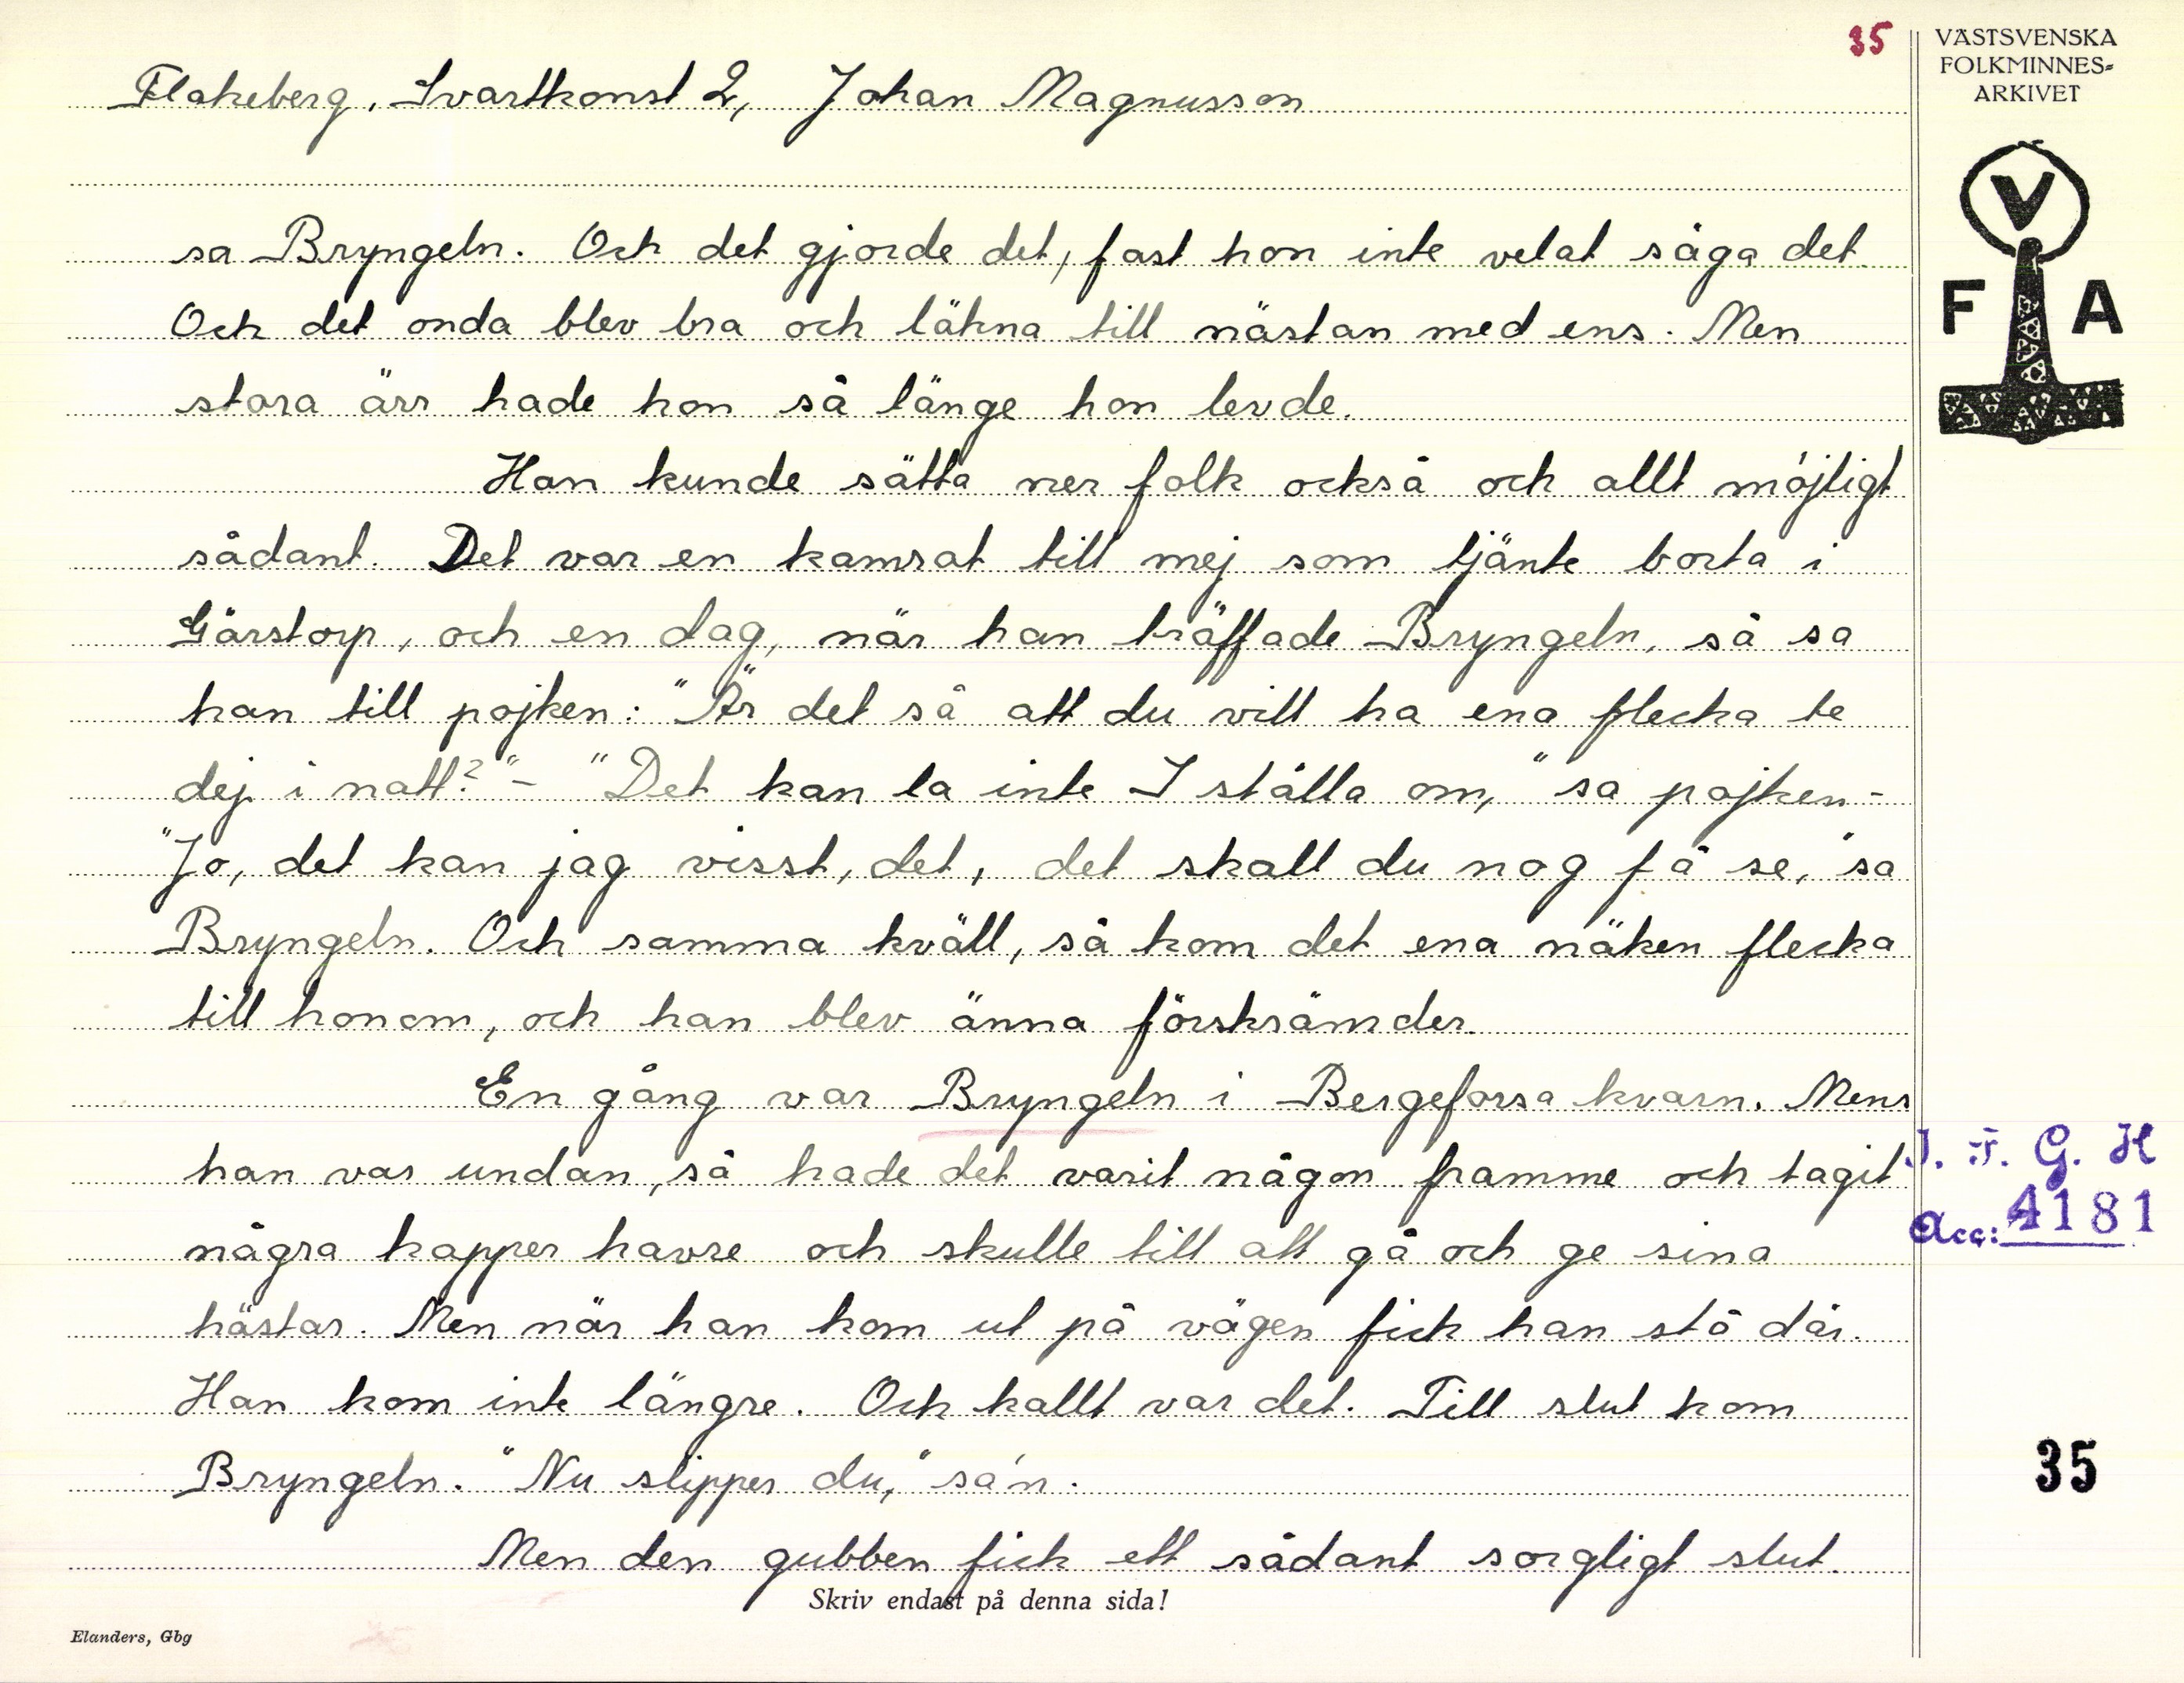 35
VÄSTSVENSKA
FOLKMINNES-
ARKIVET
V
F A
Flakeberg. Svartkonst 2, Johan Magnusson
sa Bryngeln. Och det gjorde det, fast hon inte velat säga det.
Och det onda blev bra och läkna till nästan med ens. Men
stora ärr hade hon så länge hon levde.
Han kunde sätta ner folk också och allt möjligt
sådant. Det var en kamrat till mej som tjänte borta i
Gärstorp, och en dag, när han träffade Bryngeln, så sa
han till pojken: "Är det så att du vill ha ena flecka te
dej i natt?" – "Det kan la inte I ställa om," sa pojken –
"Jo, det kan jag visst, det, det skall du nog få se," sa
Bryngeln. Och samma kväll, så kom det ena näken flecka
till honom, och han blev änna förskrämder.
En gång var Bryngeln i Bergeforsa kvarn. Mens
han var undan, så hade det varit någon framme och tagit
några kapper havre och skulle till att gå och ge sina
hästar. Men när han kom ut på vägen fick han stå där.
Han kom inte längre. Och kallt var det. Till slut kom
Bryngeln. "Nu slipper du," sa'n.
Men den gubben fick ett sådant sorgligt slut.
I. F. G. H
Acc: 4181
35
Skriv endast på denna sida!
Elanders, Gbg